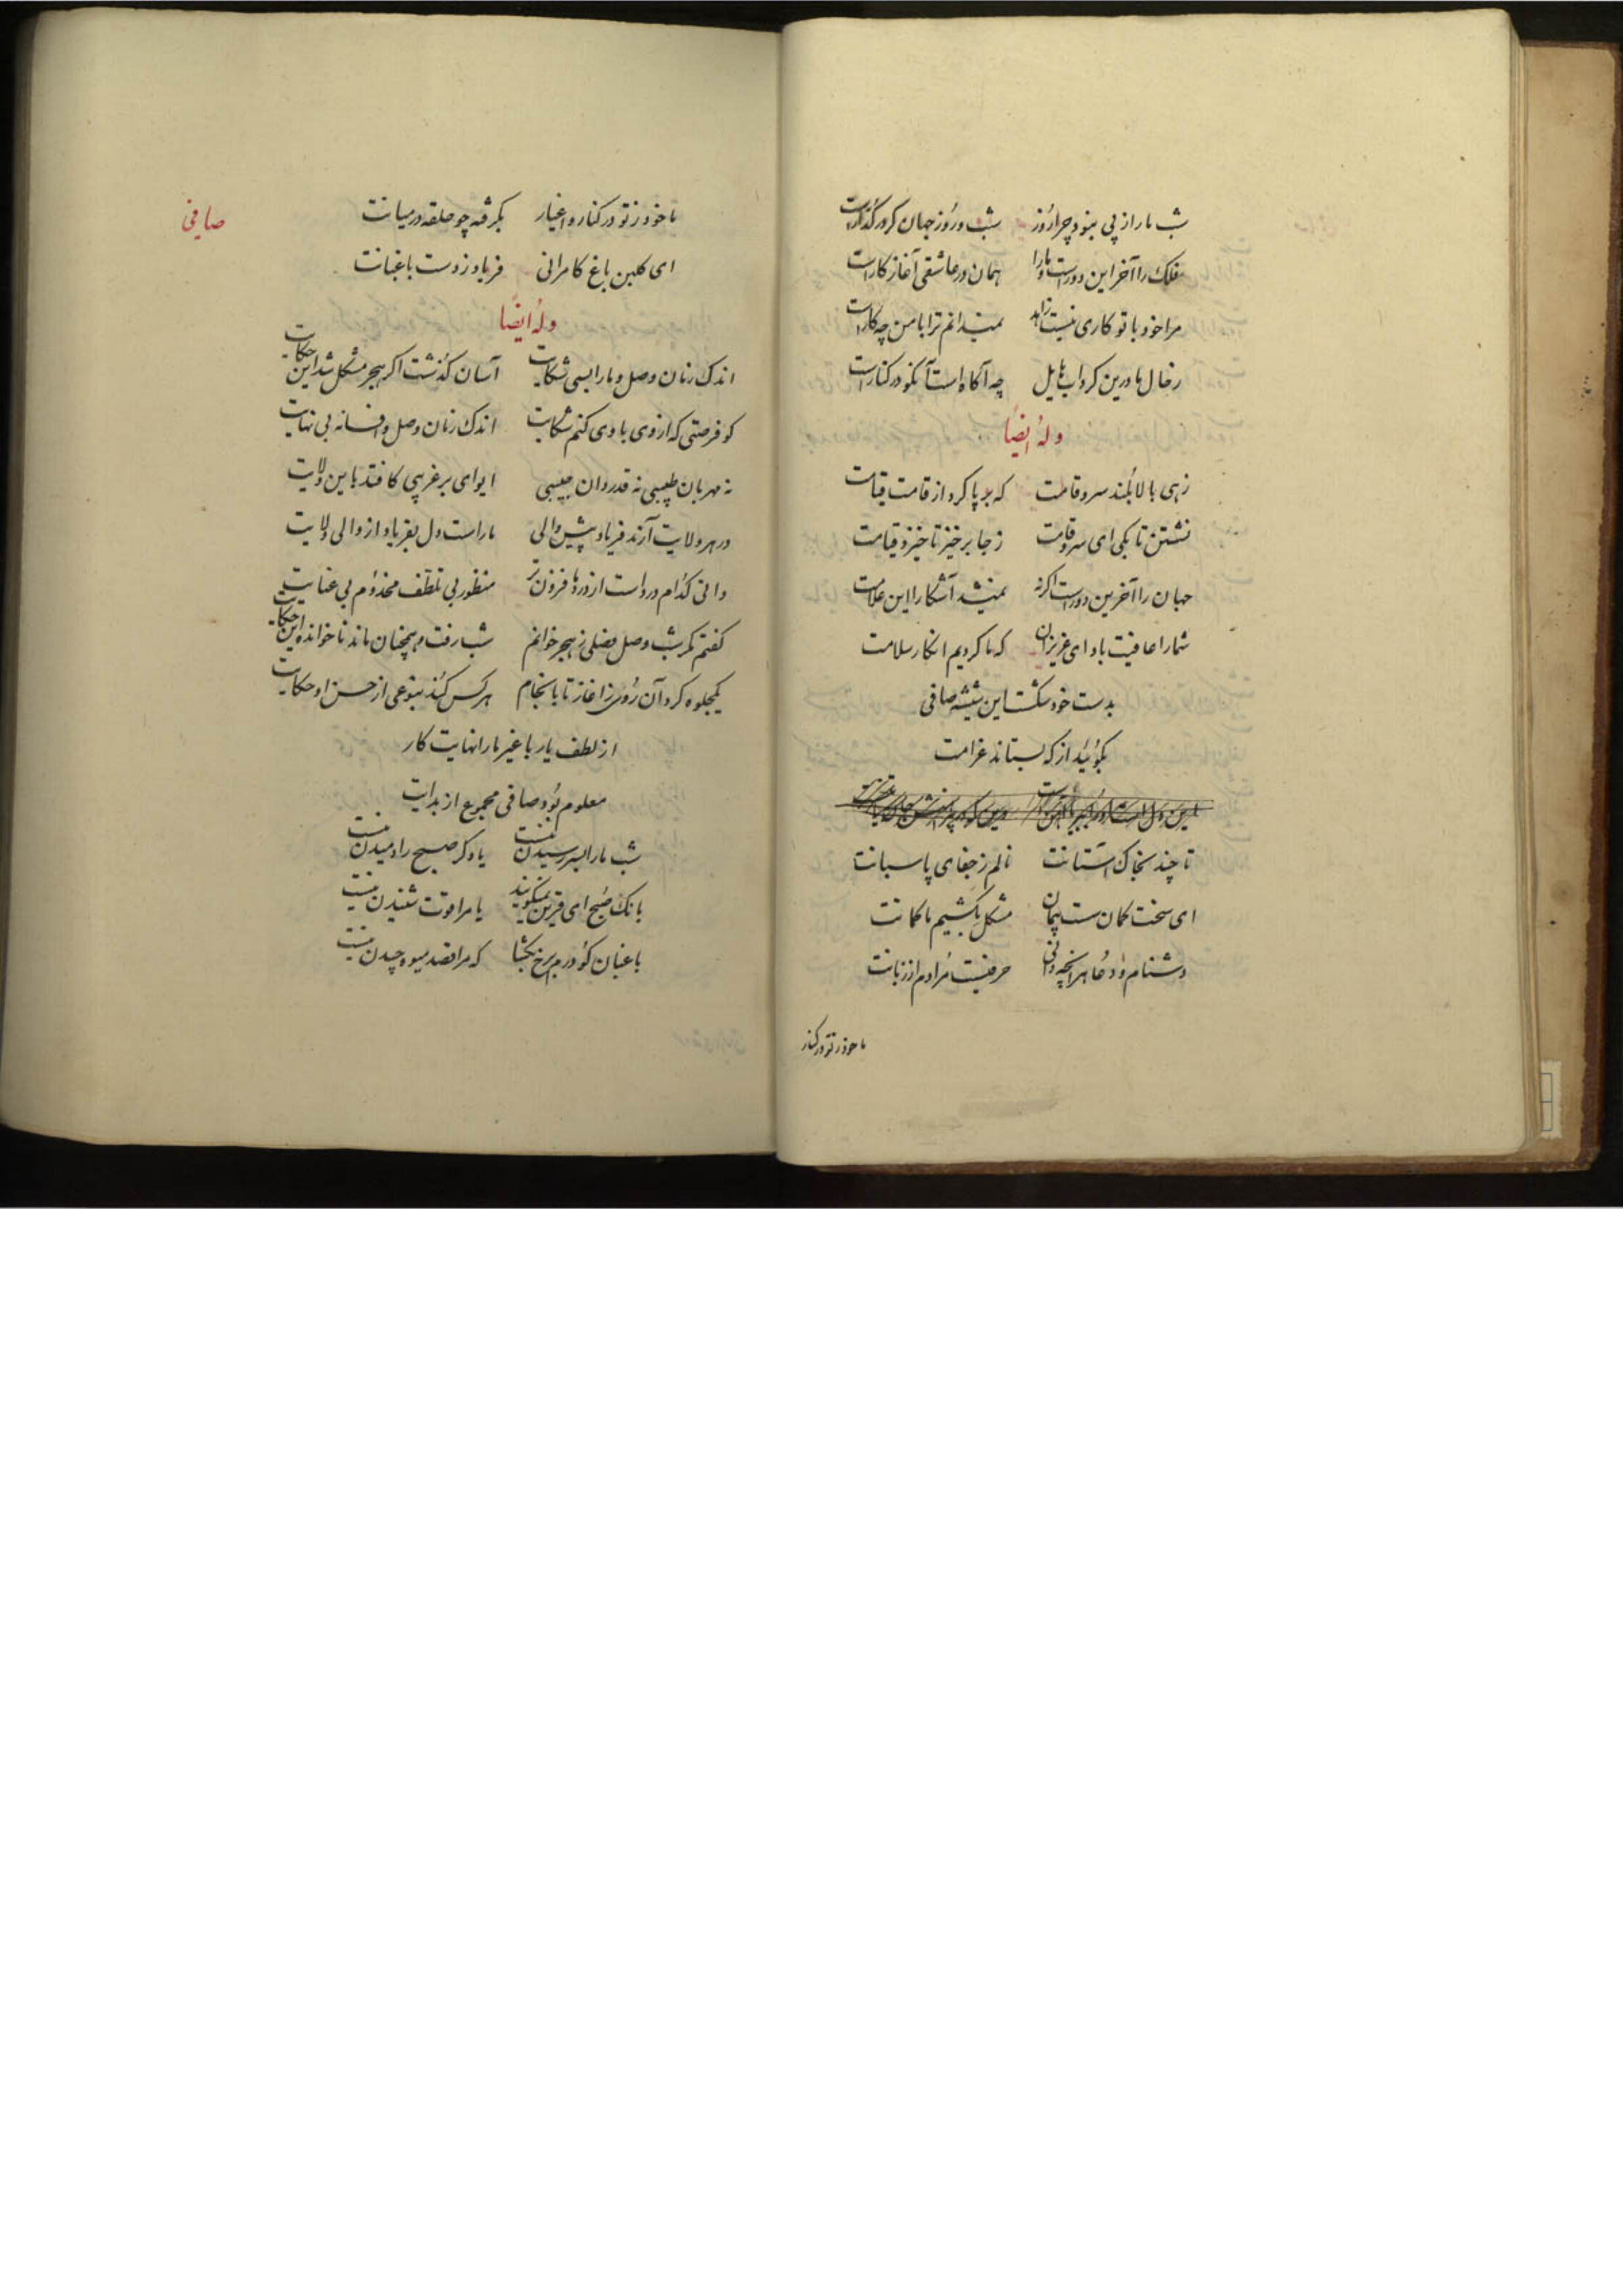 شب ما را از پی نبود چرا روز شب و روز جهان گر در گذارست
فلک را آخر این دورست و ما را همان در عاشقی آغاز کارست
مرا خود با تو کاری نیست زاهد نمیدانم ترا با من چه کارست
ز حال ما درین گرداب هایل چه آگاه است آنکو در کنارست
وله ایضاً
زهی بالا بلند سرو قامت که بر پا کرد از قامت قیامت
نشستن تا بکی ای سرو قامت ز جا برخیز تا خیزد قیامت
جهان را آخرین دورست اگر نه نمیشد آشکارا این علامت
شما را عافیت باد ای عزیزان که ما کردیم انکار سلامت
بدست خود شکست این شیشه صافی
بگوئید از که بستاند غرامت
تا چند بخاک آستانت نالم ز جفای پاسبانت
ای سخت کمان سست پیمان مشکل بکشیم ما کمانت
دشنام و دعا هر آنچه دانی حرفیست مرادم از زبانت
ما خود ز تو در کنار
صافی
ما خود ز تو در کنار و اغیار بگرفته چو حلقه در میانت
ای گلبن باغ کامرانی فریاد ز دست باغبانت
وله ایضاً
اندک زمان وصل و ما را بسی شکایت آسان گذشت اگر هجر مشکل شد این حکایت
کو فرصتی که از وی با وی کنم شکایت اندک زمان وصل و افسانه بی نهایت
نه مهربان طبیبی نه قدردان حبیبی ایوای بر غریبی کافتد باین ولایت
در هر ولایت آرند فریاد پیش والی ما راست دل بفریاد از والی ولایت
دانی کدام درد است از دردها فزون تر منظور بی تلطف مخدوم بی عنایت
گفتم مگر شب وصل فصلی ز هجر خوانم شب رفت و همچنان ماند ناخوانده این حکایت
یکجلوه کرد آن روی ز اغاز تا بانجام هر کس کند بنوعی از حسن او حکایت
از لطف یار با غیر ما را نهایت کار
معلوم بود صافی مجموع از بدایت
شب ما را بسر رسیدن نیست یا دگر صبح را دمیدن نیست
بانک صبح ای قرین نمیگویند یا مرا قوت شنیدن نیست
باغبان گو درم برخ بگشا که مرا قصد میوه چیدن نیست